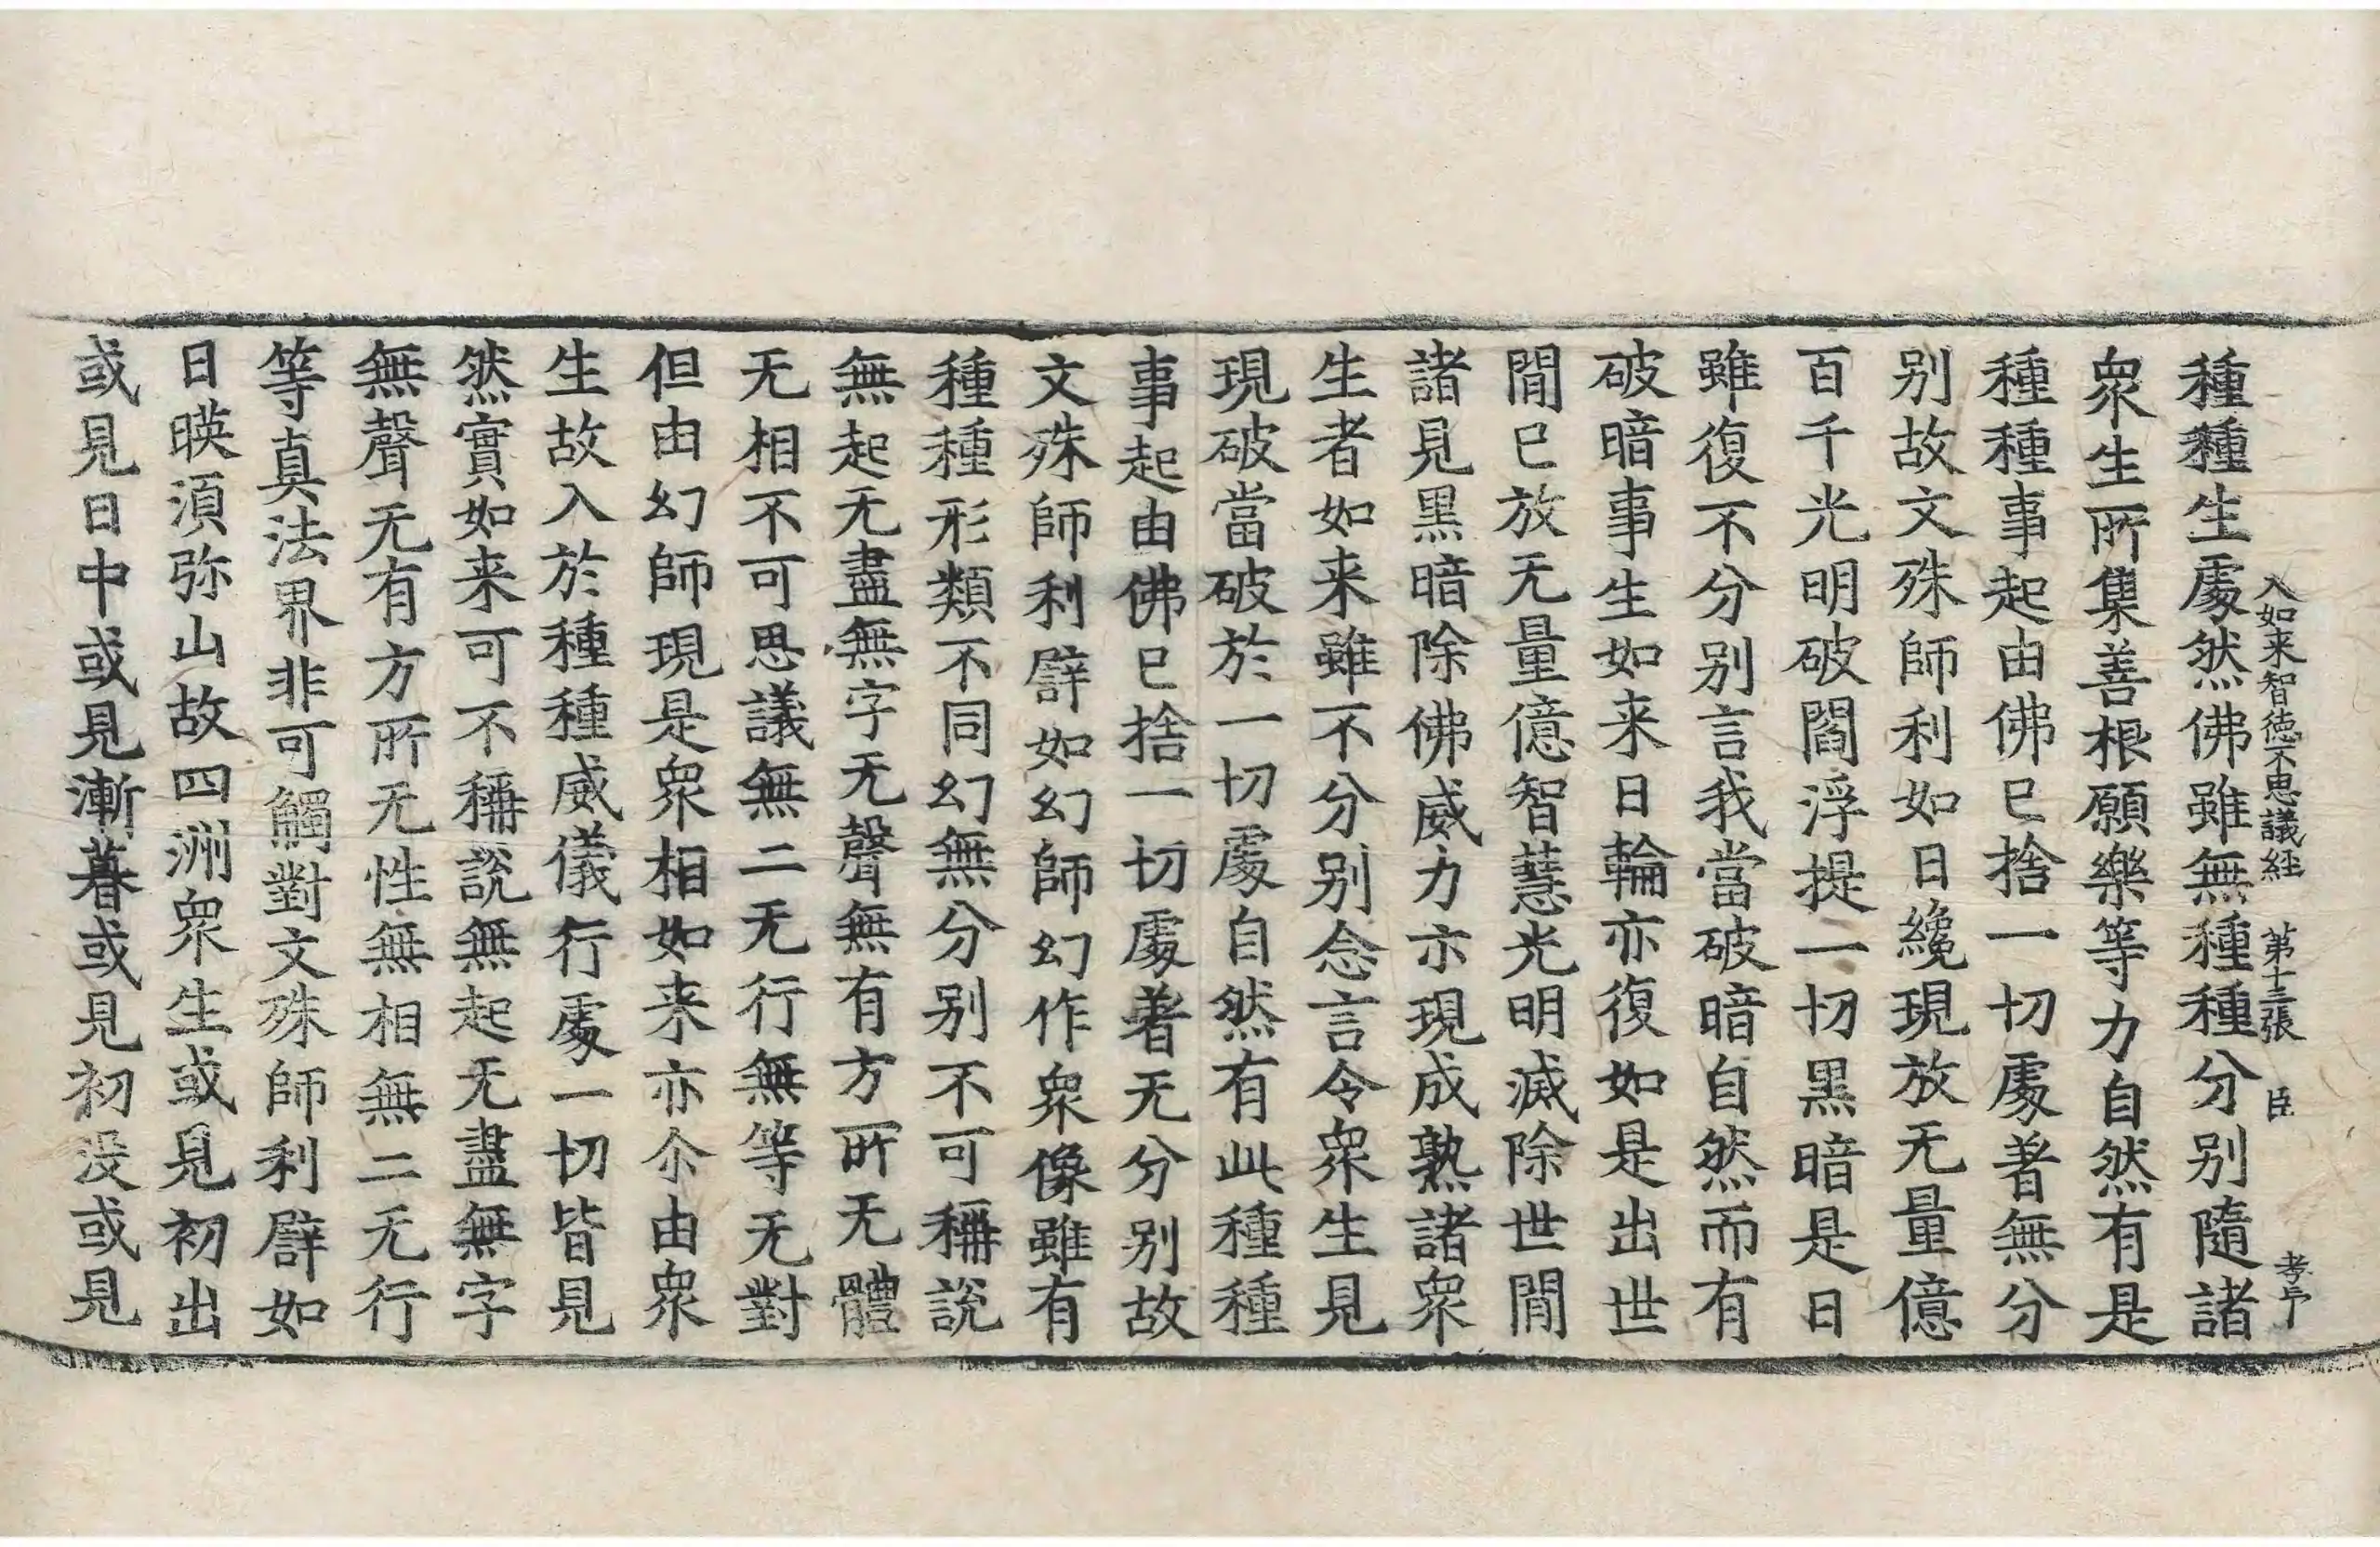 入如来智徳不思議経 第十三張 臣 孝与
種種生處然佛雖無種種分别隨諸
衆生所集善根願樂等力自然有是
種種事起由佛已捨一切處著無分
别故文殊師利如日纔現放无量億
百千光明破閻浮提一切黒暗是日
雖復不分别言我當破暗自然而有
破暗事生如来日輪亦復如是出世
間已放无量億智慧光明滅除世間
諸見黒暗除佛威力亦現成熟諸衆
生者如来雖不分别念言令衆生見
現破當破於一切處自然有此種種
事起由佛已捨一切處著无分别故
文殊師利譬如幻師幻作衆像雖有
種種形類不同幻無分别不可稱説
無起无盡無字无聲無有方所无體
无相不可思議無二无行無等无對
但由幻師現是衆相如来亦尒由衆
生故入於種種威儀行處一切皆見
然實如来可不稱説無起无盡無字
無聲无有方所无性無相無二无行
等真法界非可觸對文殊師利譬如
日暎須弥山故四洲衆生或見初出
或見日中或見漸暮或見初没或見